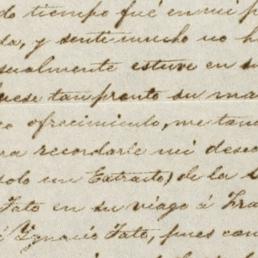 do tiempo fué en mi p
da, y senti mucho no h
sualmente estuve en su
ese tan pronto su ma
ofrecimiento, me tom
ra recordarle mi deseo
solo un Extracto) de la
Tato en su viage á Fra
é Ygnacio Tato, pues con